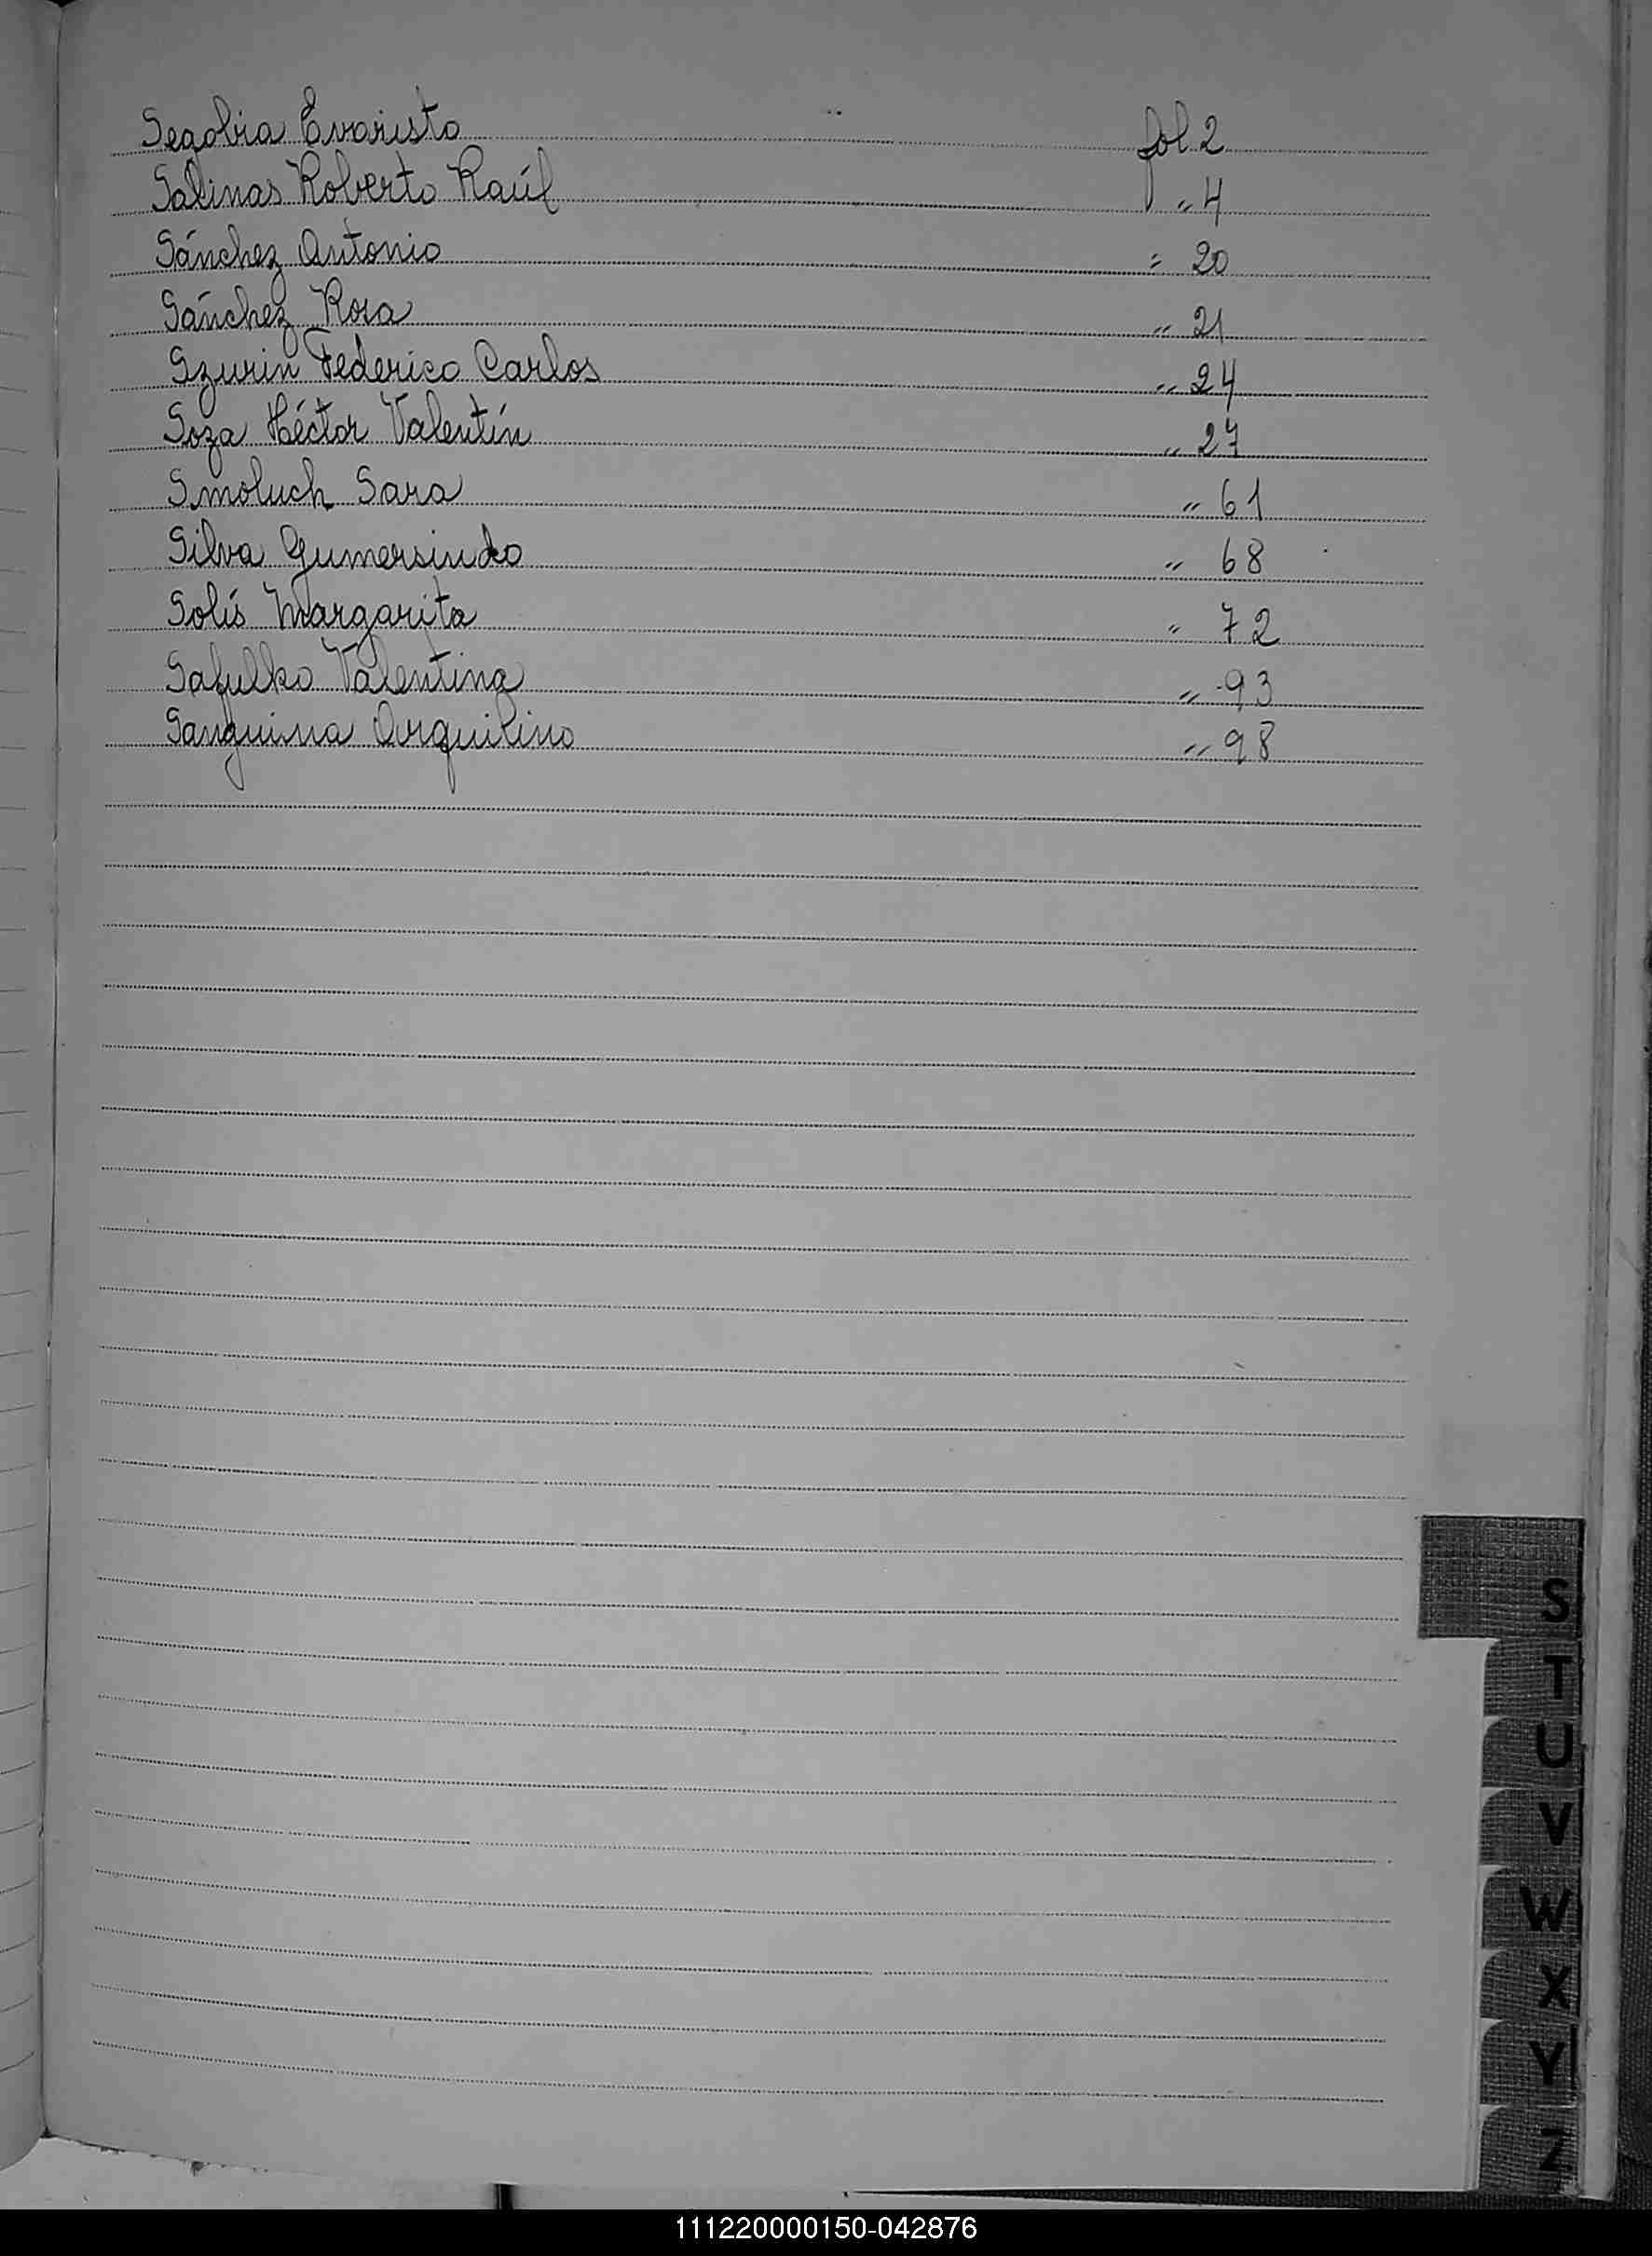 Segobia Evaristo fol 2
Salinas Roberto Raúl " 4
Sánchez Antonio " 20
Sánchez Rosa " 21
Szurin Federico Carlos " 24
Soza Héctor Valentín " 27
Smoluch Sara " 61
Silva Gumersindo " 68
Solís Margarita " 72
Safulko Valentina " 93
Sanguina Orquilino " 98
S
T
U
V
W
X
Y
Z
111220000150-042876